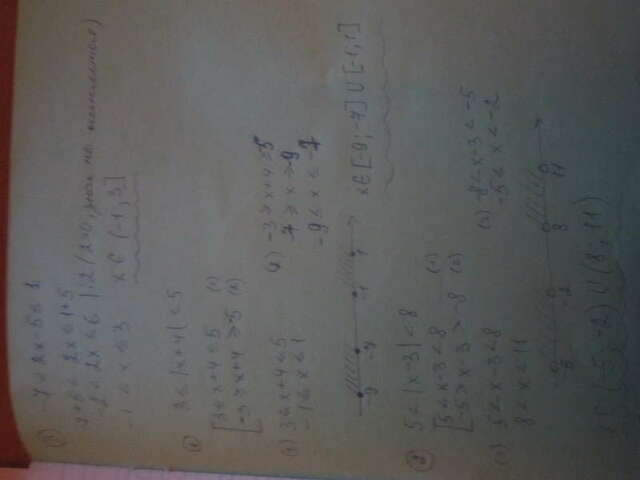 5) -7 < 2x-5 ≤ 1
-7+5 < 2x ≤ 1+5
-2 < 2x ≤ 6 | :2 (2>0, знак не меняется)
-1 < x ≤ 3 x ∈ (-1; 3]
3 ≤ |x+4| ≤ 5
[3 ≤ x+4 ≤ 5 (1)
[-3 ≥ x+4 ≥ -5 (2)
(1) 3 ≤ x+4 ≤ 5 (2) -3 ≥ x+4 ≥ -5
-1 ≤ x ≤ 1 -7 ≥ x ≥ -9
-9 ≤ x ≤ -7
-9 -7 -1 1
x ∈ [-9; -7] U [-1; 1]
5 < |x-3| < 8
[5 < x-3 < 8 (1)
[-5 > x-3 > -8 (2)
(1) 5 < x-3 < 8 (2) -8 < x-3 < -5
8 < x < 11 -5 < x < -2
-5 -2 8 11
x ∈ (-5; -2) U (8; 11)